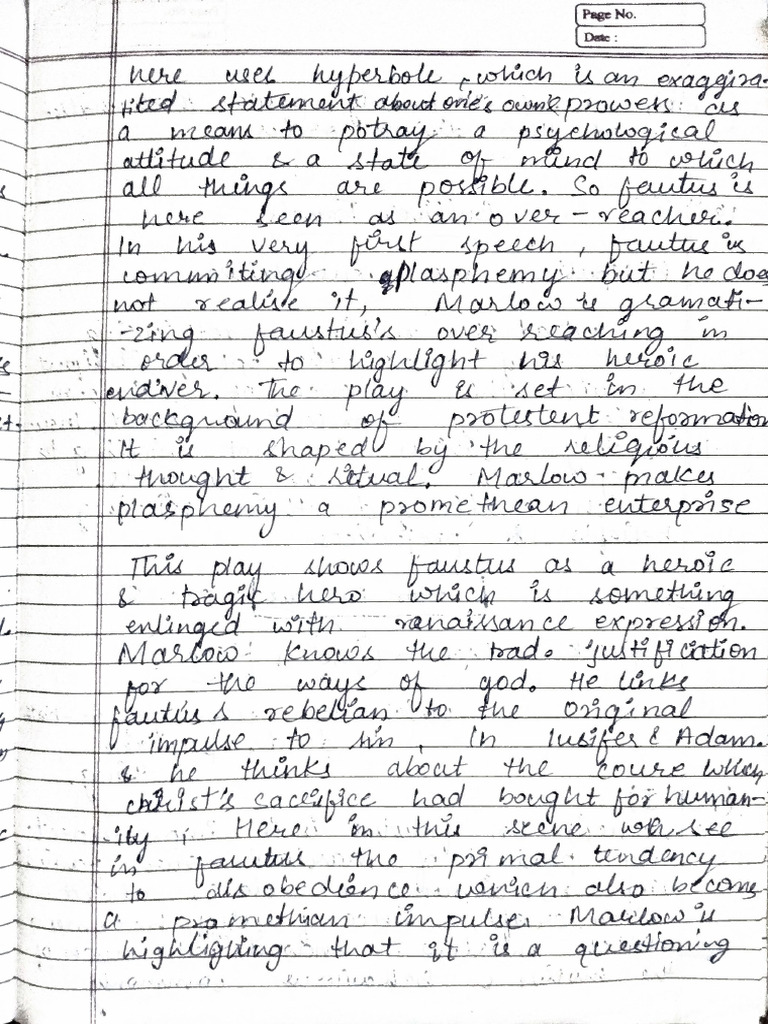 Page No.
Date :
here uses hyperbole, which is an exaggira-
rited statement about one's own prowess as
a means to potray a psychological
attitude & a state of mind to which
all things are possible. So fautus is
here seen as an over-reacher.
In his very first speech, fautus is
commiting plasphemy but he does
not realise it, Marlow is gramati-
-zing faustus's over reaching in
order to highlight his heroic
endiver. The play is set in the
background of protestent reformation
It is shaped by the religious
thought & ritual. Marlow makes
plasphemy a promethean enterprise
This play shows faustus as a heroic
& tragic hero which is something
enlinged with ranaissance expression.
Marlow knows the trad. justification
for the ways of god. He links
fautus's rebelian to the original
impulse to sin, In lusifer & Adam.
& he thinks about the coure which
christ's sacrifice had bought for human-
ity, Here in this scene we see
in faustus the primal tendency
to disobedience which also become
a promethian impulse. Marlow is
highlighting that it is a questioning